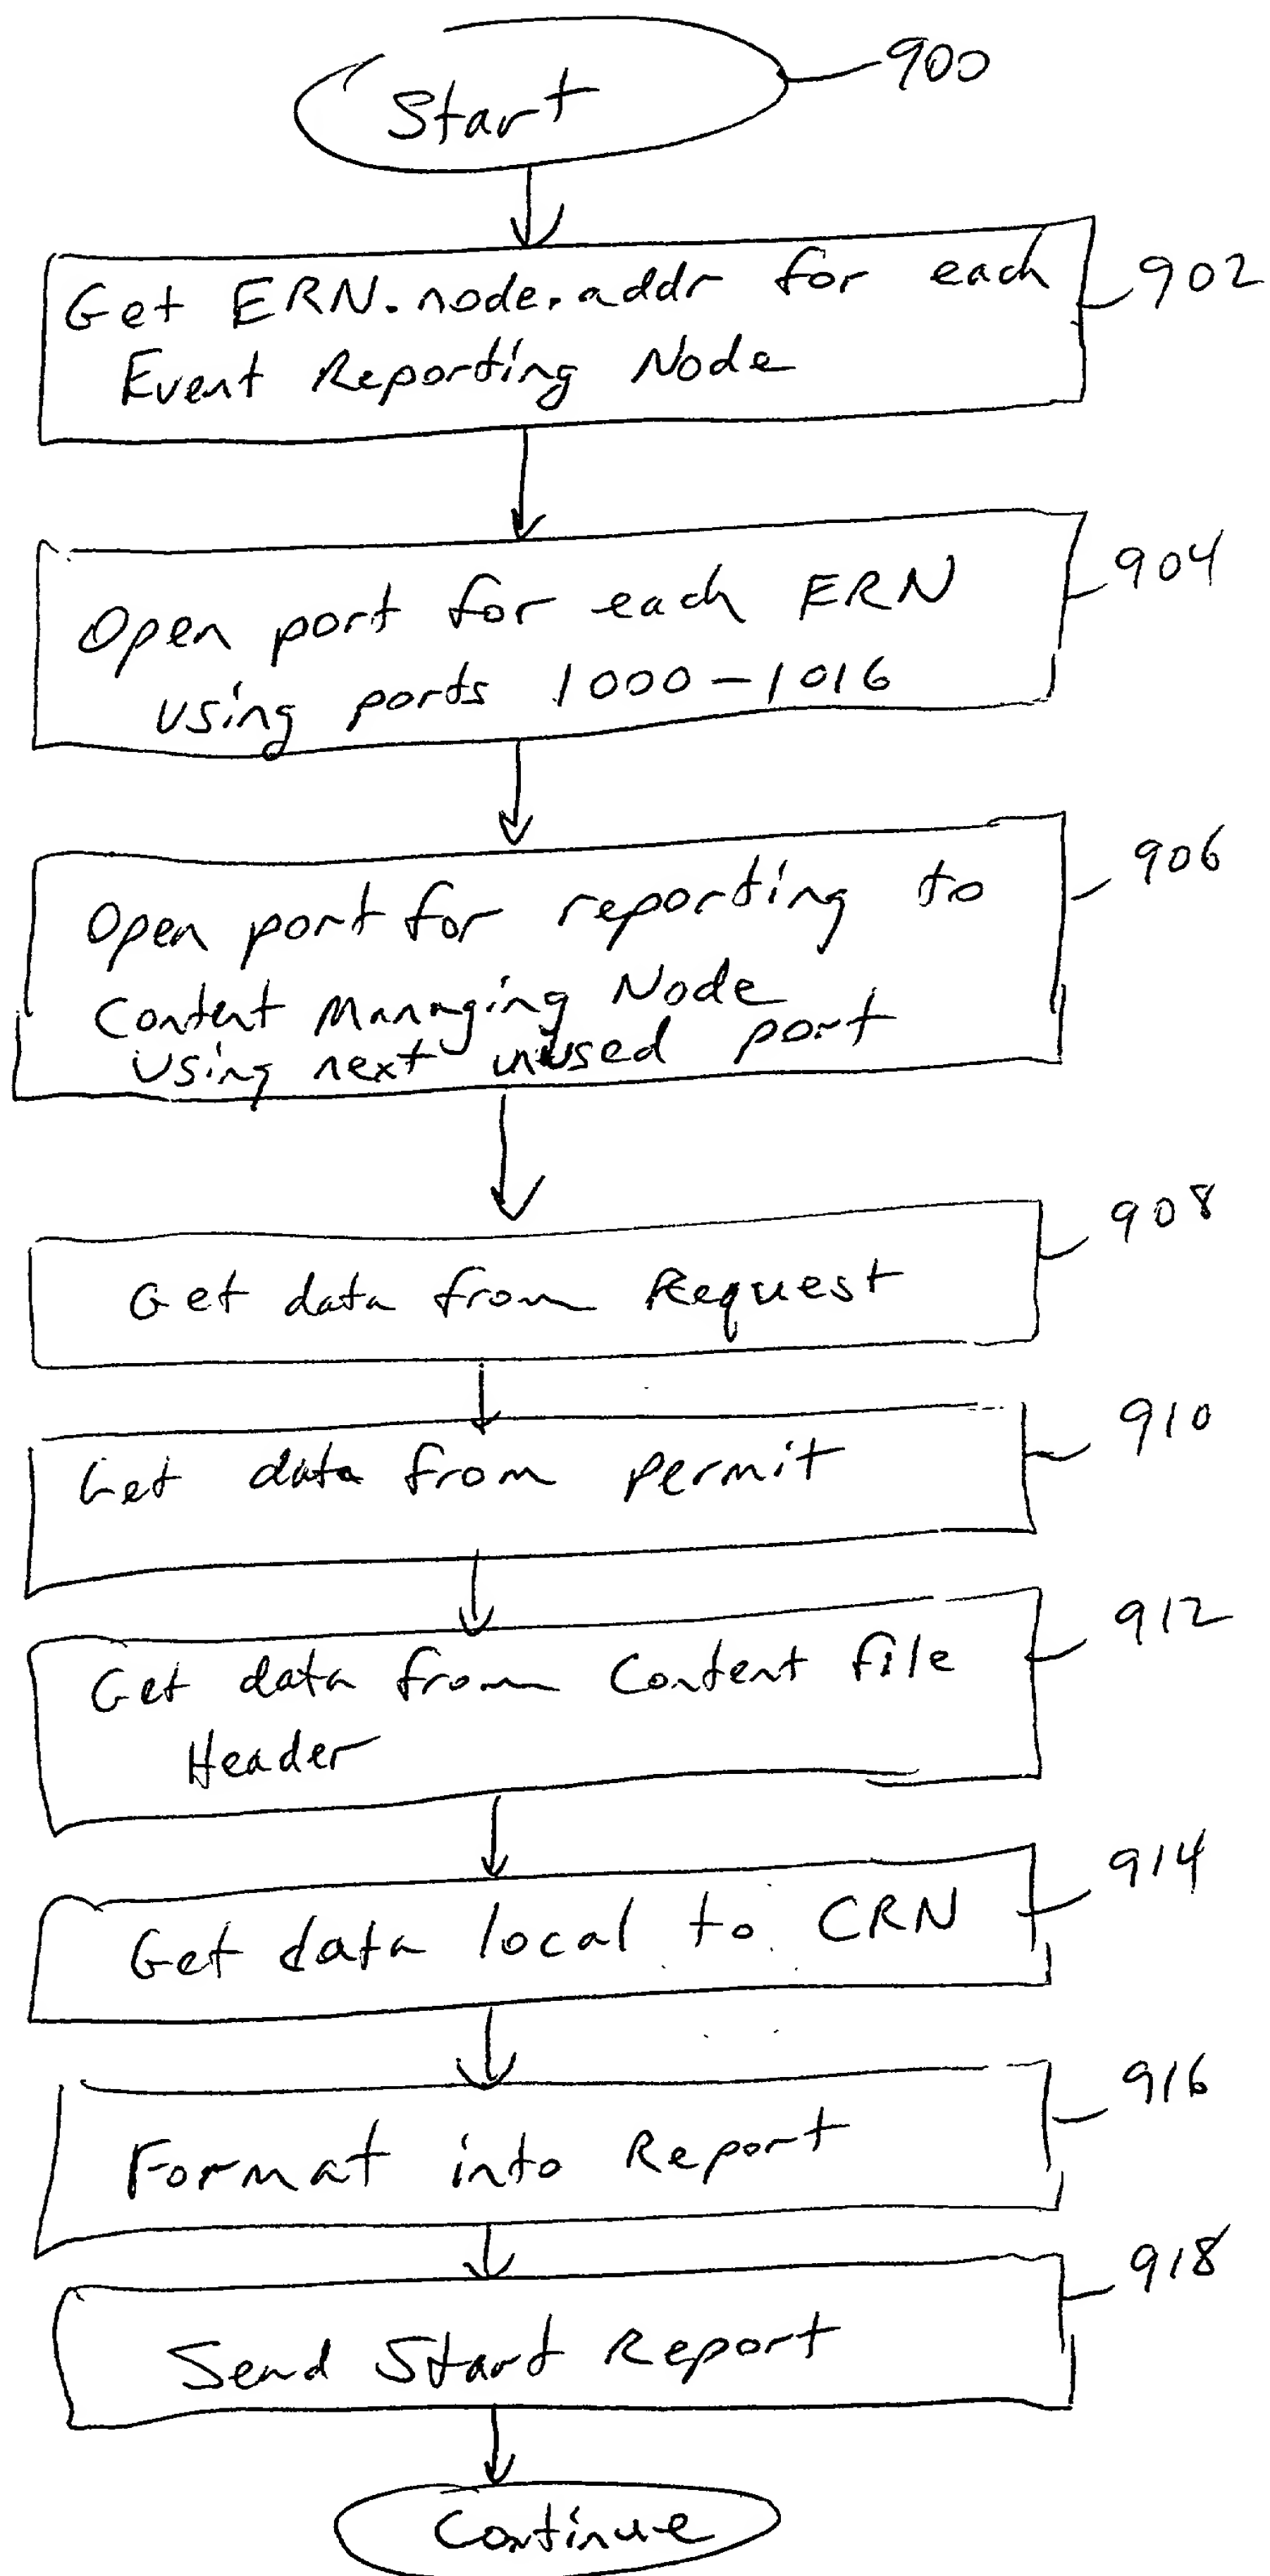 Start
900
Get ERN.node.addr for each
Event Reporting Node
902
Open port for each ERN
using ports 1000-1016
904
Open port for reporting to
Content Managing Node
using next unused port
906
Get data from Request
908
Get data from permit
910
Get data from Content file
Header
912
Get data local to CRN
914
Format into Report
916
Send Start Report
918
Continue